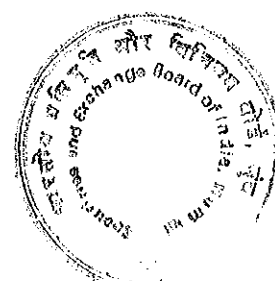 भारतीय प्रतिभूति और विनिमय बोर्ड, मुंबई
Securities and Exchange Board of India, Mumbai